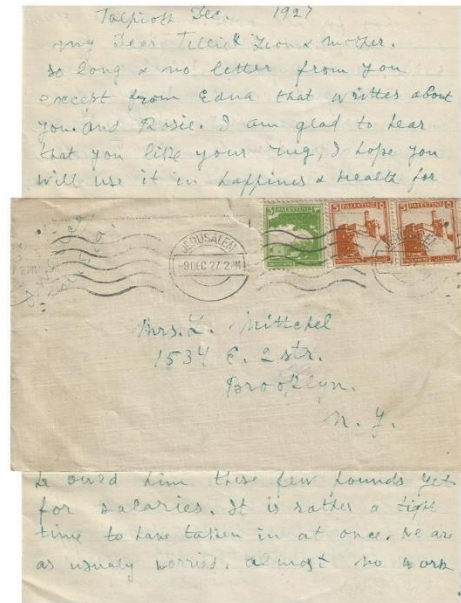 Talpioth Dec. 1927
my Dear Tillie & Leon & mother.
so long & no letter from you
except from Edna that writtes about
you. and Rosie. I am glad to hear
that you like your rug, I hope you
will use it in happiness & health for
JERUSALEM
-9 DEC 27. 2 PM
PALESTINE
PALESTINE
PALESTINE
Mrs. L. Mittchel
1534 E. 2 str.
Brooklyn.
N. Y.
he owed him these few pounds yet
for salaries. It is rather a tight
time to have taken in at once. We are
as usualy worried. almost no work